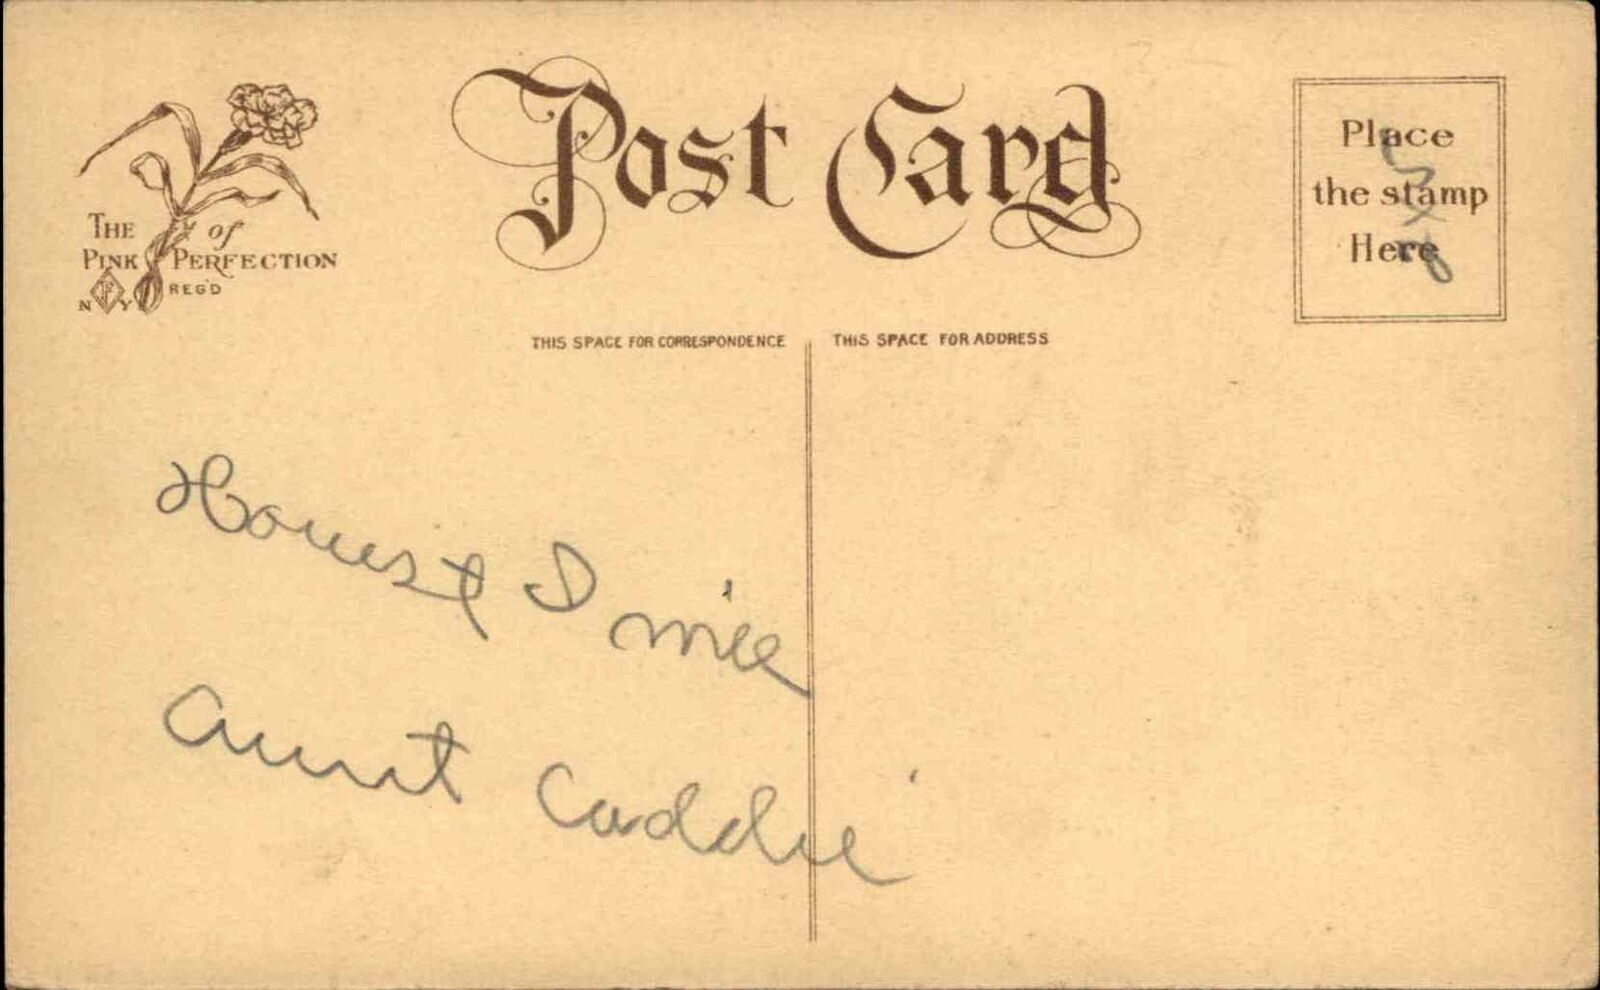 Post Card
THE of
PINK PERFECTION
REG'D
N FP Y
Place
the stamp
Here
THIS SPACE FOR CORRESPONDENCE
THIS SPACE FOR ADDRESS
Honest I will
Aunt Caddie